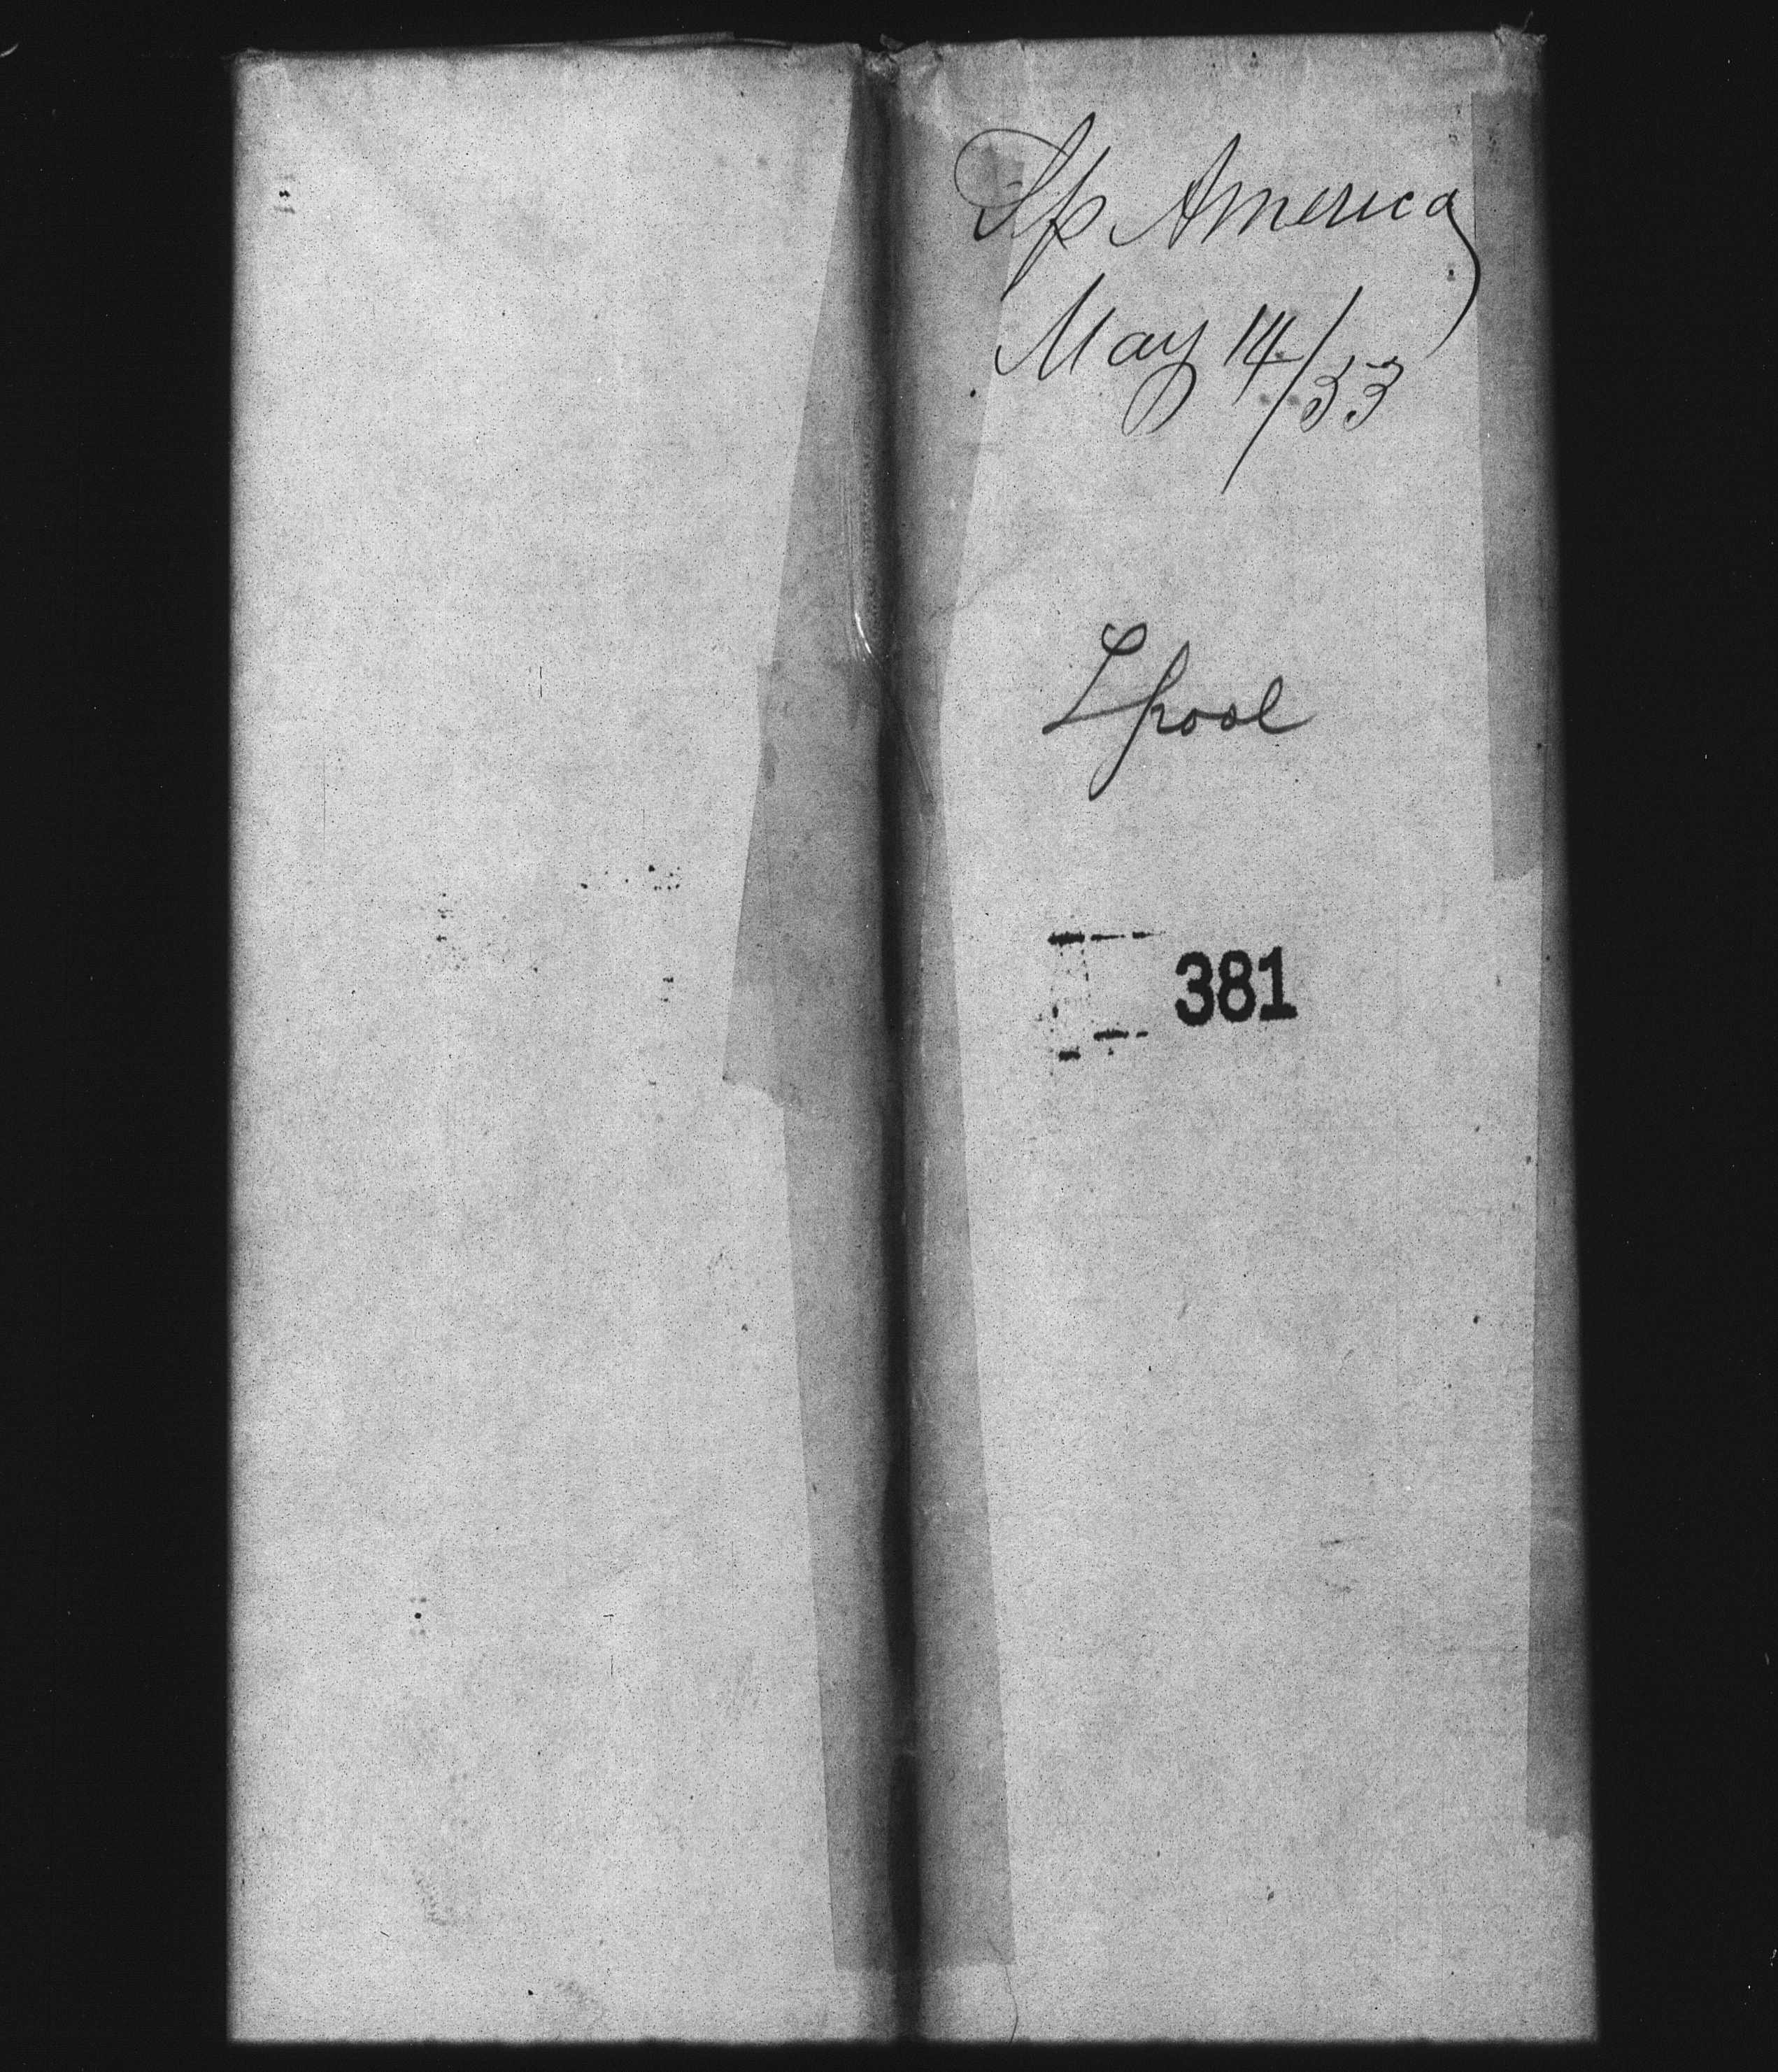 Sp America
May 14/33
Lpool
381